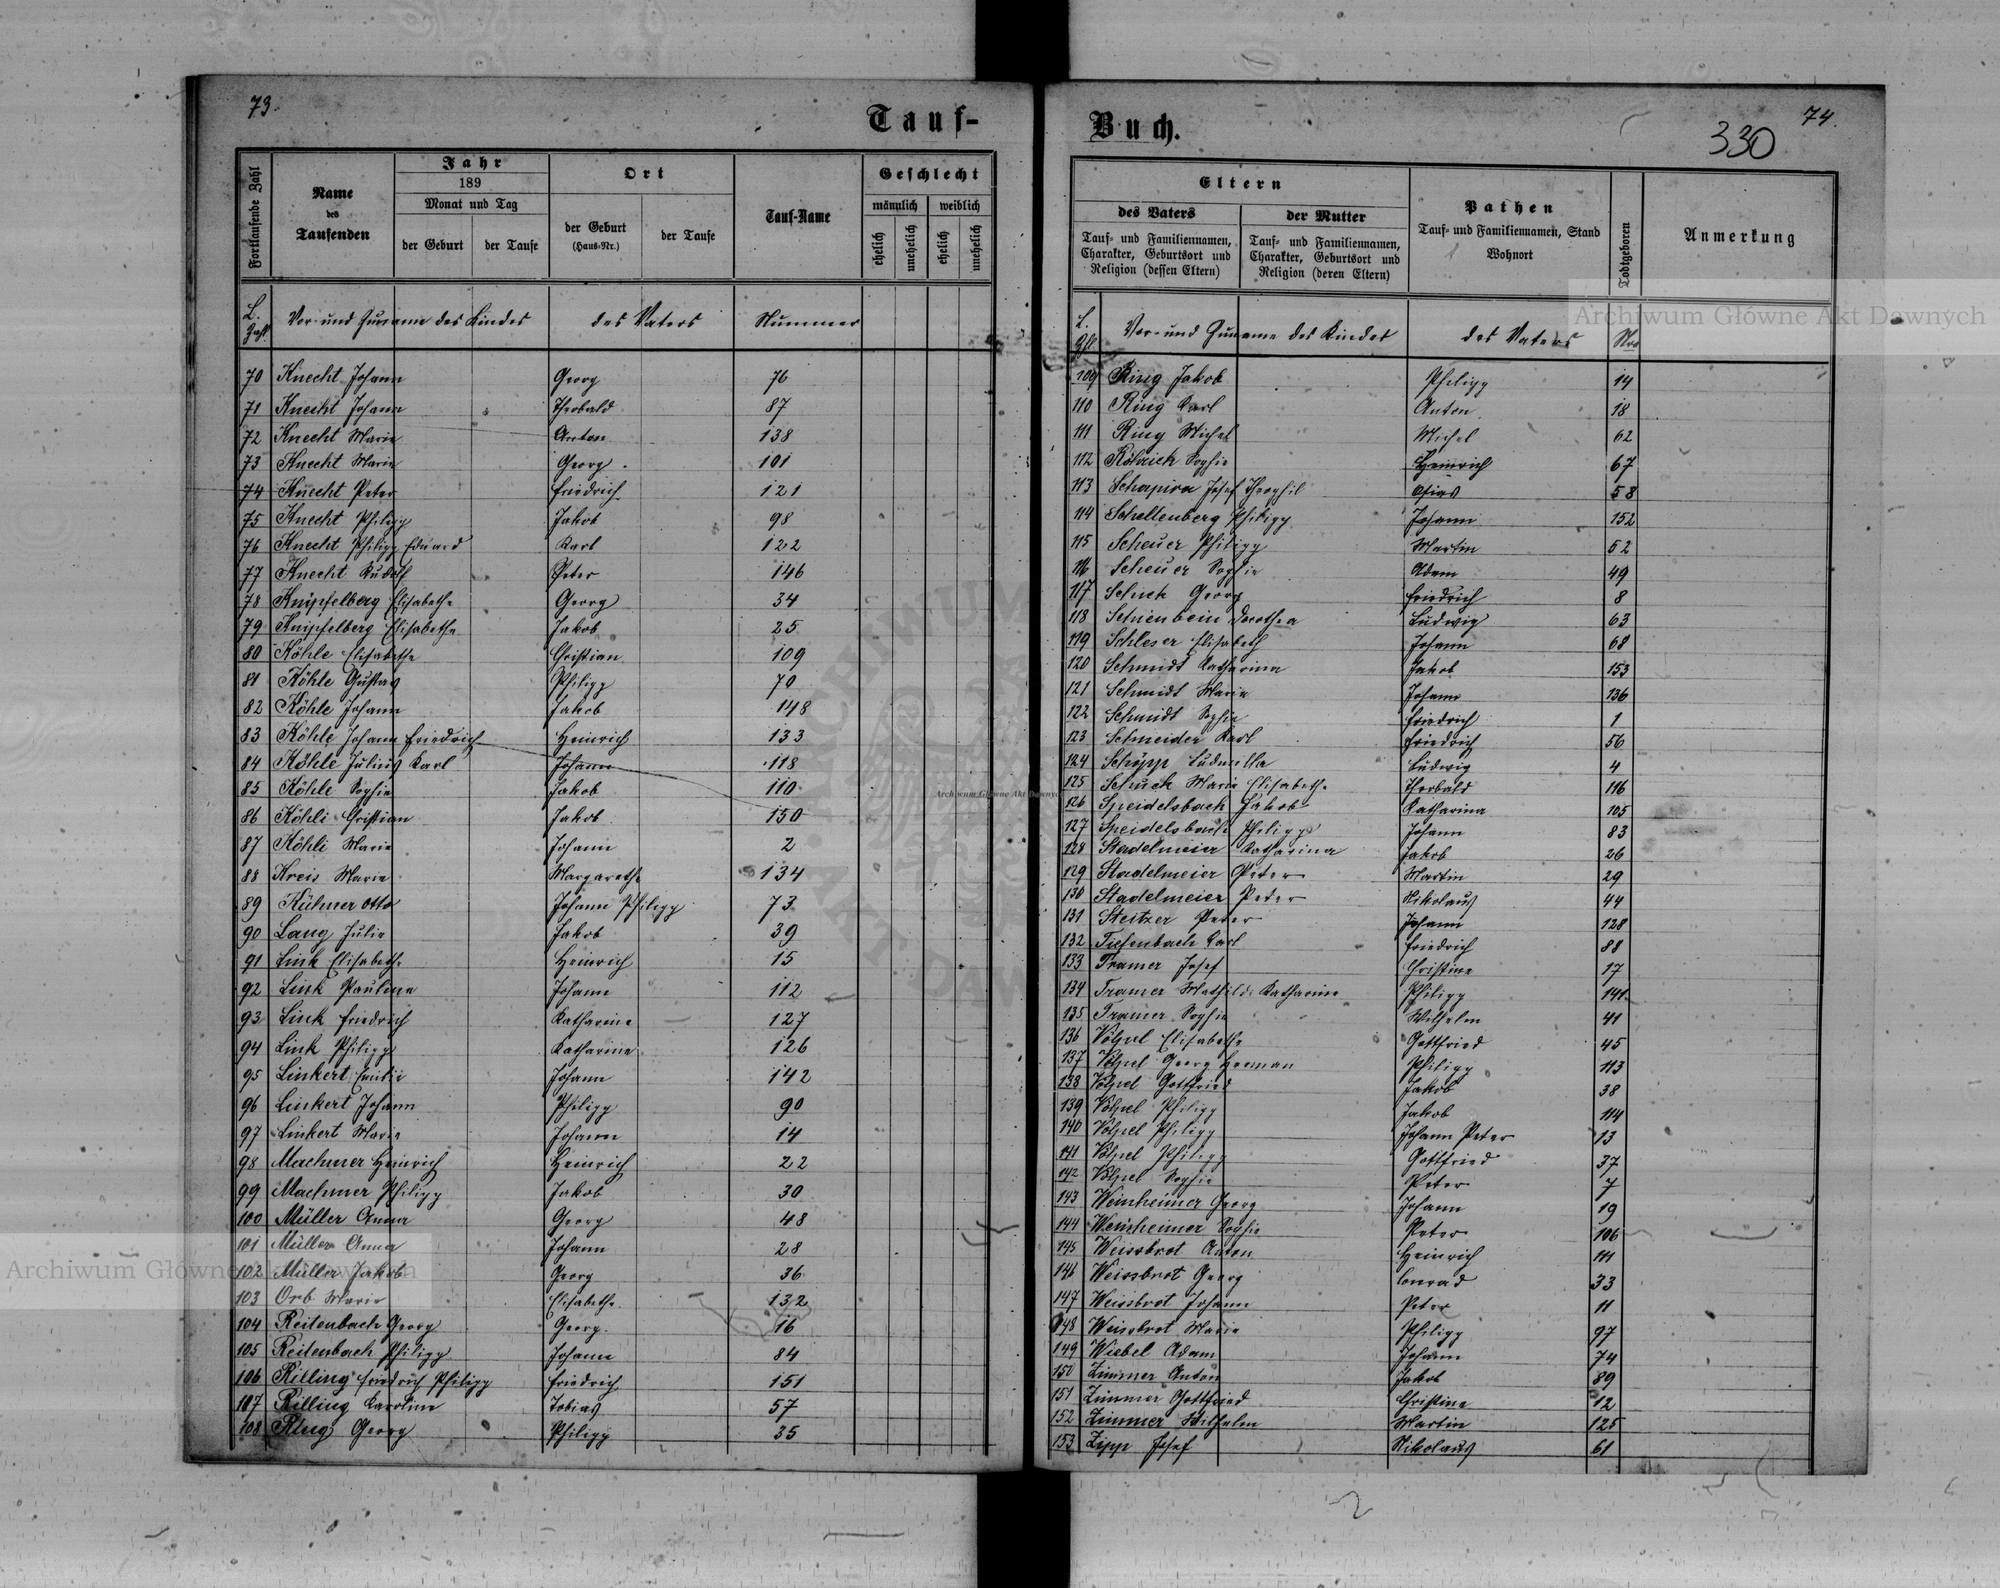 73.
Tauf-
Fortlaufende Zahl
Name
des
Taufenden
Jahr
189
Monat und Tag
der Geburt
der Taufe
Ort
der Geburt
(Haus-Nr.)
der Taufe
Tauf-Name
Geschlecht
männlich
weiblich
ehelich
unehelich
ehelich
unehelich
L. Zahl Vor- und Zuname des Kindes des Vaters Nummer
70 Knecht Johann Georg 76
71 Knecht Johann Theobald 87
72 Knecht Marie Anton 138
73 Knecht Marie Georg 101
74 Knecht Peter Friedrich 121
75 Knecht Philipp Jakob 98
76 Knecht Philipp Eduard Karl 122
77 Knecht Rudolf Peter 146
78 Knipfelberg Elisabethe Georg 34
79 Knipfelberg Elisabethe Jakob 25
80 Köhle Elisabethe Christian 109
81 Köhle Gustav Philipp 70
82 Köhle Johann Jakob 148
83 Köhle Johann Friedrich Heinrich 133
84 Köhle Julius Karl Johann 118
85 Köhle Sophie Jakob 110
86 Köhli Christian Jakob 150
87 Köhli Marie Johann 2
88 Kreis Marie Margarethe 134
89 Kühner Otto Johann Philipp 73
90 Lang Julie Jakob 39
91 Link Elisabethe Heinrich 15
92 Link Pauline Johann 112
93 Link Friedrich Katharine 127
94 Link Philipp Katharine 126
95 Linkert Emilie Johann 142
96 Linkert Johann Philipp 90
97 Linkert Marie Johann 14
98 Machmer Heinrich Heinrich 22
99 Machmer Philipp Jakob 30
100 Müller Anna Georg 48
101 Müller Anna Johann 28
102 Müller Jakob Georg 36
103 Orb Marie Elisabethe 132
104 Reitenbach Georg Georg 16
105 Reitenbach Philipp Johann 84
106 Rilling Friedrich Philipp Friedrich 151
107 Rilling Karoline Tobias 57
108 Ring Georg Philipp 35
Buch.
330
74.
Eltern
des Vaters
Tauf- und Familiennamen,
Charakter, Geburtsort und
Religion (dessen Eltern)
der Mutter
Tauf- und Familiennamen,
Charakter, Geburtsort und
Religion (deren Eltern)
Pathen
Tauf- und Familiennamen, Stand
Wohnort
Todtgeboren
Anmerkung
L. Zhl Vor- und Zuname des Kindes des Vaters Nro
109 Ring Jakob Philipp 14
110 Ring Karl Anton 18
111 Ring Michel Michel 62
112 Röhrich Sophie Heinrich 67
113 Schapira Josef Theophil Osias 58
114 Schellenberg Philipp Johann 152
115 Scheuer Philipp Martin 52
116 Scheuer Sophie Adam 49
117 Schick Georg Friedrich 8
118 Schienbein Dorothea Ludwig 63
119 Schleser Elisabeth Johann 68
120 Schmidt Katharina Jakob 153
121 Schmidt Marie Johann 136
122 Schmidt Sophie Friedrich 1
123 Schneider Karl Friedrich 56
124 Schöpp Ludmilla Ludwig 4
125 Schuck Marie Elisabethe Theobald 116
126 Speidelsbach Jakob Katharina 105
127 Speidelsbach Philipp Johann 83
128 Stadelmeier Katharina Jakob 26
129 Stadelmeier Peter Martin 29
130 Stadelmeier Peter Nikolaus 44
131 Steitzer Peter Johann 128
132 Tiefenbach Karl Friedrich 88
133 Tramer Josef Christine 17
134 Tramer Mathilde Katharine Philipp 141
135 Tramer Sophie Wilhelm 41
136 Völpel Elisabethe Gottfried 45
137 Völpel Georg Herman Philipp 113
138 Völpel Gottfried Jakob 38
139 Völpel Philipp Jakob 114
140 Völpel Philipp Johann Peter 13
141 Völpel Philipp Gottfried 37
142 Völpel Sophie Peter 7
143 Weinheimer Georg Johann 19
144 Weinheimer Sophie Peter 106
145 Weissbrot Anton Heinrich 111
146 Weissbrot Georg Conrad 33
147 Weissbrot Johann Peter 11
148 Weissbrot Marie Philipp 97
149 Wiebel Adam Johann 74
150 Zimmer Anton Jakob 89
151 Zimmer Gottfried Christine 12
152 Zimmer Wilhelm Martin 125
153 Zipp Josef Nikolaus 61
Archiwum Główne Akt Dawnych
Archiwum Główne Akt Dawnych
Archiwum Główne Akt Dawnych